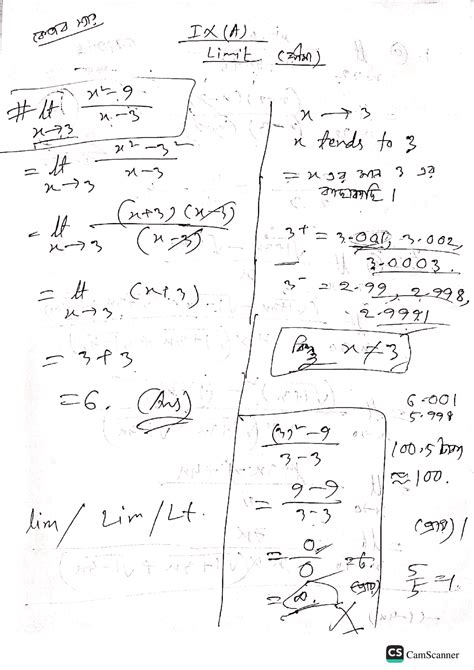 IX (A)
Limit (সীমা)
# lt x→3 x²-9 / x-3
= lt x→3 x²-3² / x-3
= lt x→3 (x+3) (x-3) / (x-3)
= lt x→3 (x+3)
= 3+3
= 6. (Ans)
lim / Lim / Lt.
x → 3
x tends to 3
= x এর মান 3 এর
কাছাকাছি।
3⁺ = 3.001, 3.002,
3.0003.
3⁻ = 2.99, 2.998,
2.9991
x ≠ 3
(3)²-9 / 3-3
= 9-9 / 3-3
= 0/0 = 6.
= ∞.
6.001
5.998
100.5
≈ 100.
5/5 = 1.
CS CamScanner